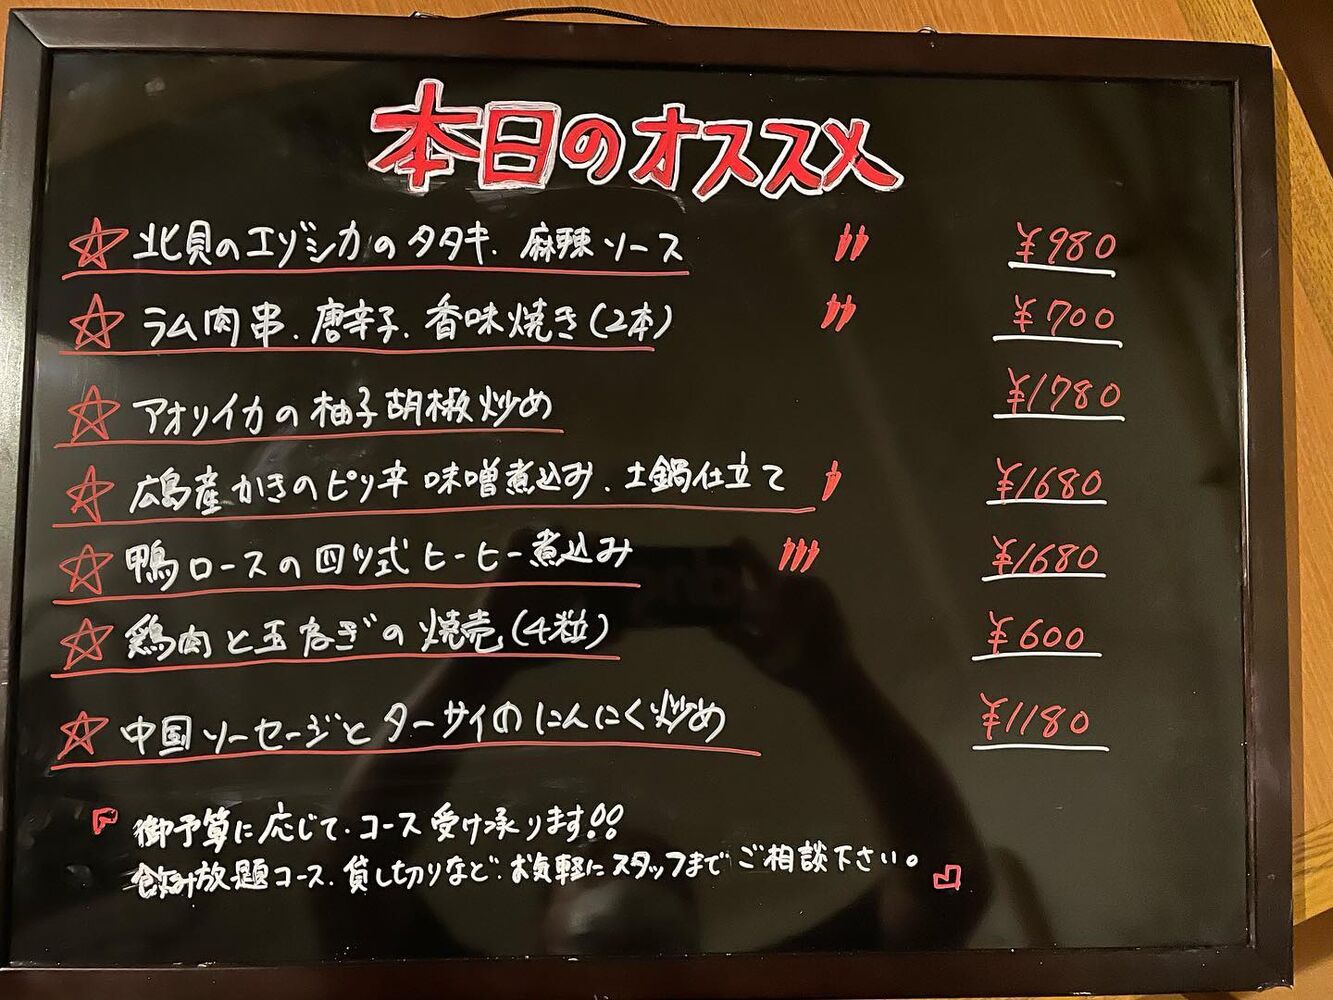 本日のオススメ
☆北貝のエゾシカのタタキ.麻辣ソース ¥980
☆ラム肉串.唐辛子.香味焼き(2本) ¥700
☆アオリイカの柚子胡椒炒め ¥1780
☆広島産かきのピリ辛味噌煮込み.土鍋仕立て ¥1680
☆鴨ロースの四川式ヒーヒー煮込み ¥1680
☆鶏肉と玉ねぎの焼売(4粒) ¥600
☆中国ソーセージとターサイのにんにく炒め ¥1180
『御予算に応じて.コース受け承ります!!
飲み放題コース.貸し切りなど.お気軽にスタッフまでご相談下さい。』